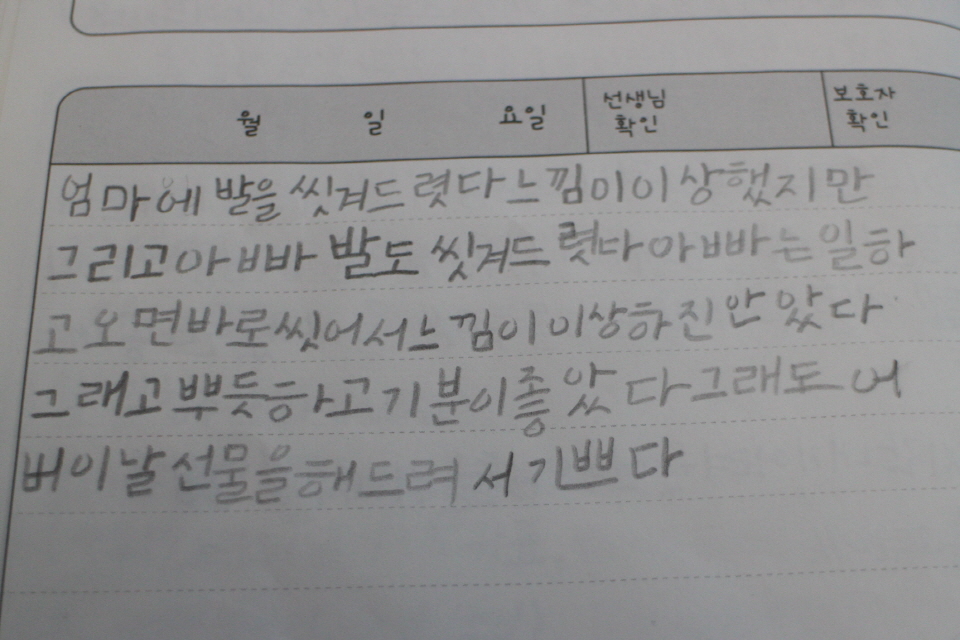 월 일 요일 선생님 확인 보호자 확인
엄마에 발을 씻겨드렷다 느낌이이상했지만
그리고아빠 발도 씻겨드렷다아빠는일하
고오면바로씻어서느낌이이상하진안았다
그래고뿌듯하고기분이좋았다그래도어
버이날선물을해드려서기쁘다